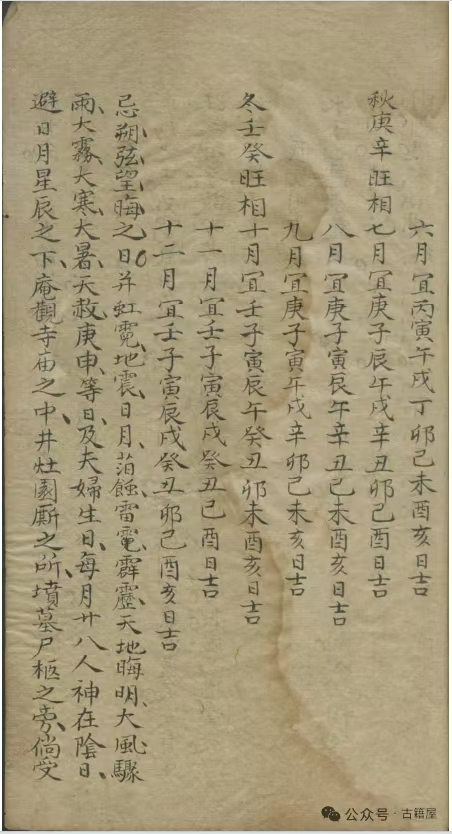 六月宜丙寅午戌丁卯己未酉亥日吉
秋庚辛旺相七月宜庚子辰午戌辛丑卯己酉日吉
八月宜庚子寅辰午辛丑己未酉亥日吉
九月宜庚子寅午戌辛卯己未亥日吉
冬壬癸旺相十月宜壬子寅辰午癸丑卯未酉亥日吉
十一月宜壬子寅辰戌癸丑己酉日吉
十二月宜壬子寅辰戌癸丑卯己酉亥日吉
忌朔弦望晦之日并虹霓地震日月薄蝕雷電霹靂天地晦明大風驟
雨大霧大寒大暑天赦庚申等日及夫婦生日每月廿八人神在陰日
避日月星辰之下庵觀寺庙之中井灶園厠之所墳墓尸柩之旁倘受
公众号·古籍屋